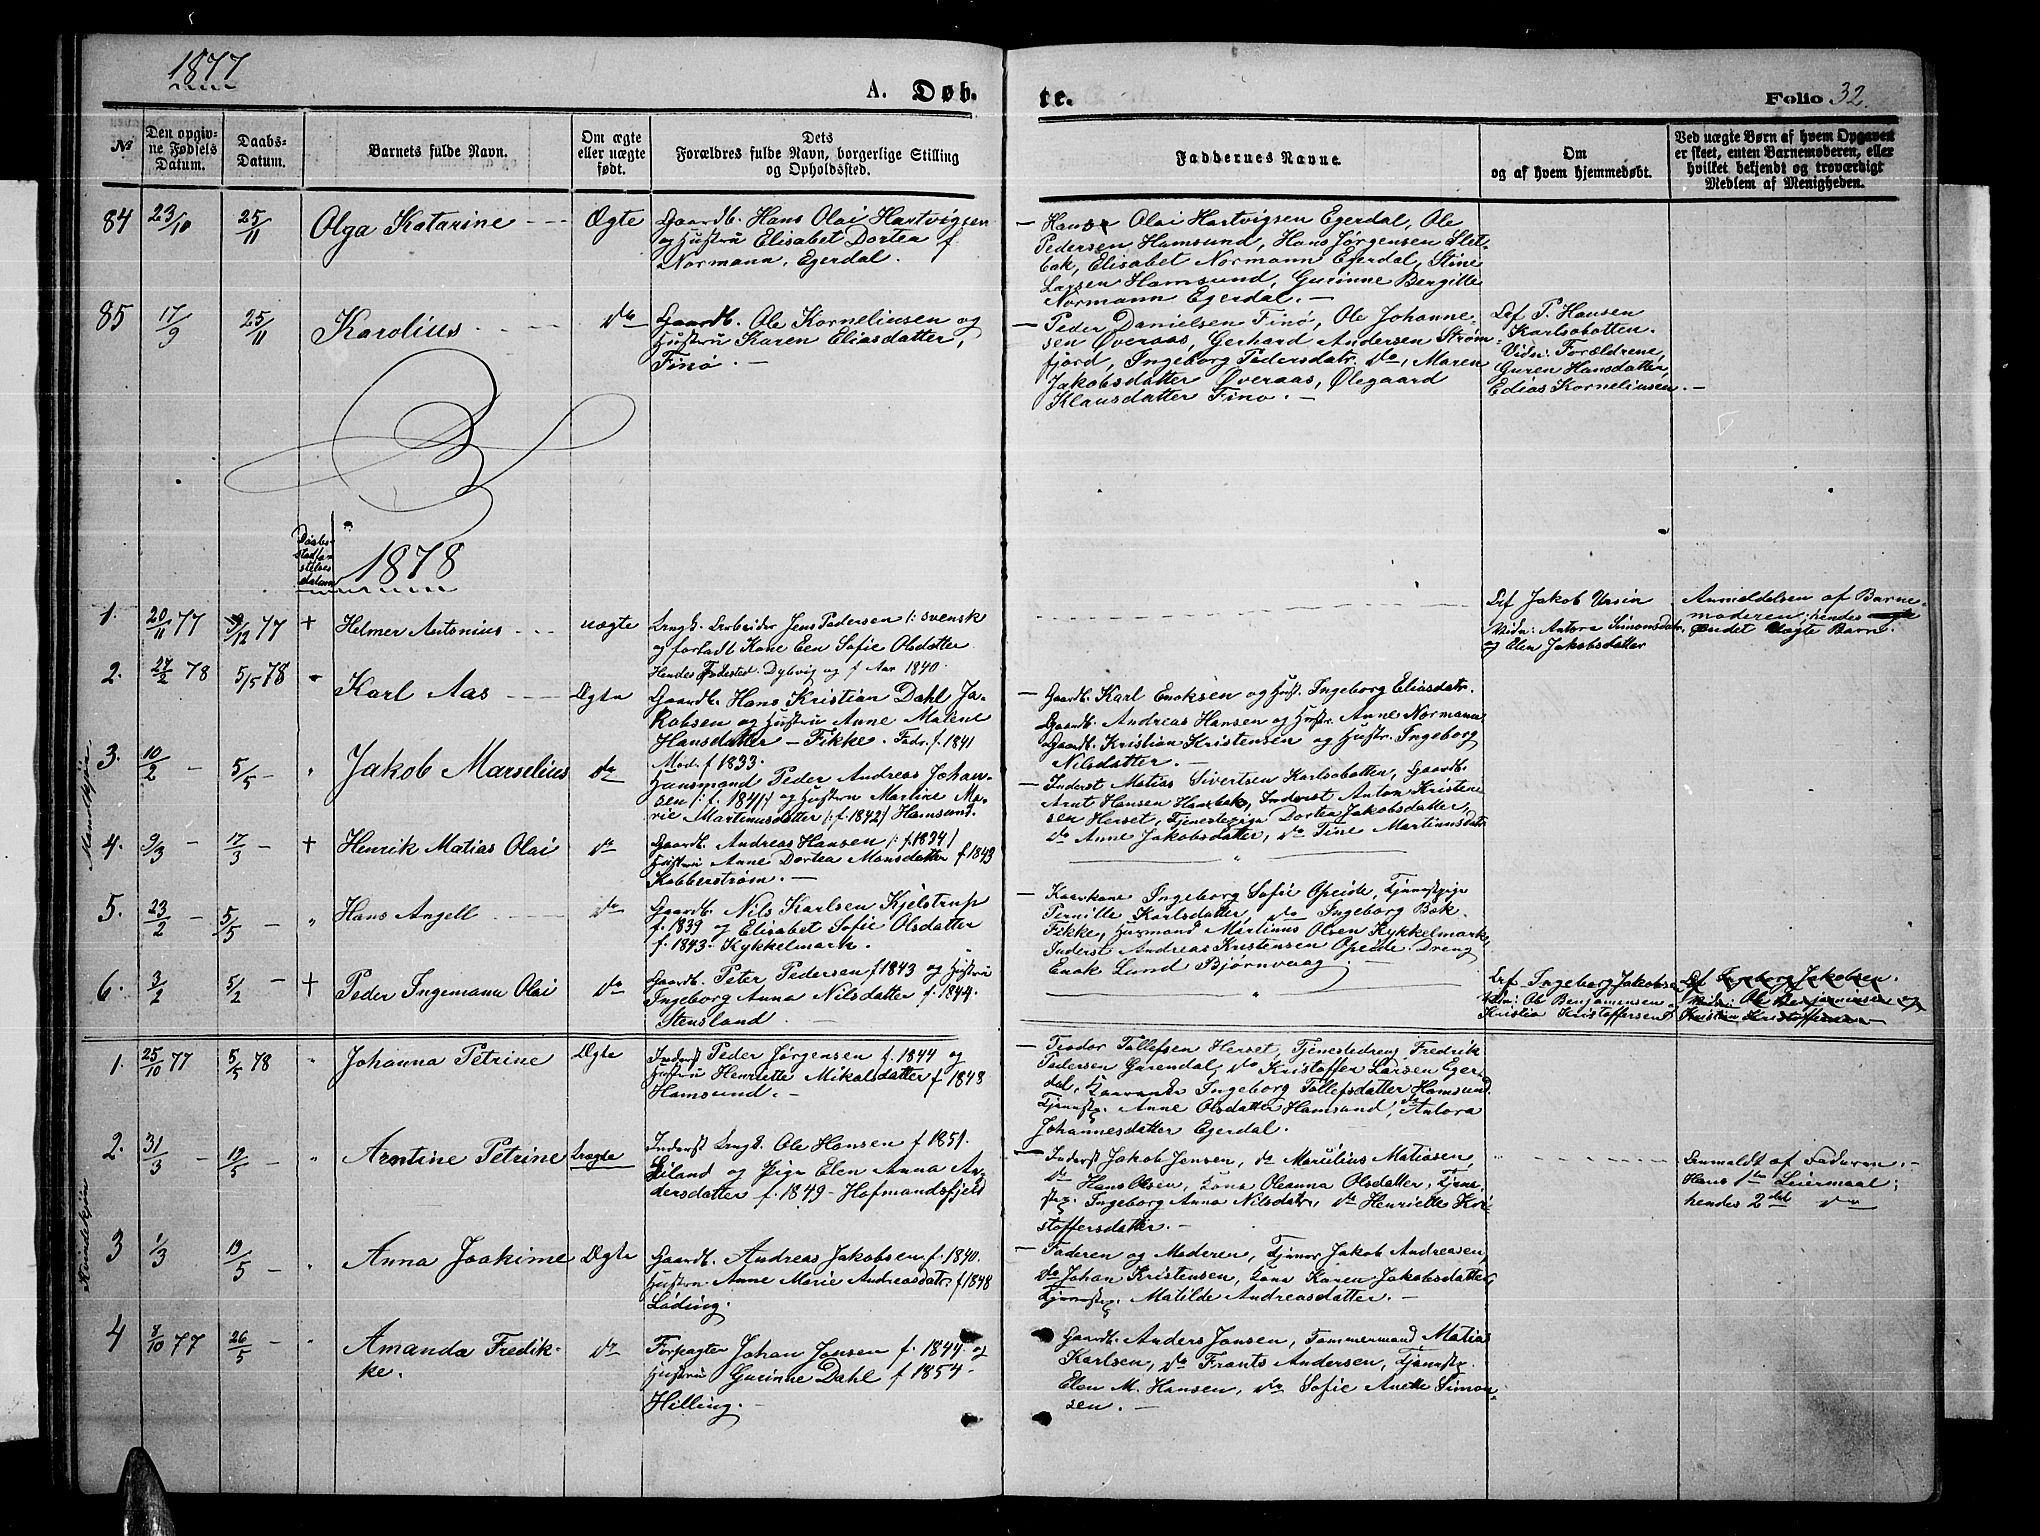 1877
A. Døb-
te.
Folio 32.
№
Den opgiv-
ne Fødsels
Datum.
Daabs-
Datum.
Barnets fulde Navn.
Om ægte
eller uægte
født.
Dets
Forældres fulde Navn, borgerlige Stilling
og Opholdssted.
Faddernes Navne.
Om
og af hvem hjemmedøbt.
Ved uægte Børn af hvem Opgaven
er skeet, enten Barnemoderen, eller
hvilket bekjendt og troværdigt
Medlem af Menigheden.
84 23/10 25/11 Olga Katarine Ægte
Gaardb. Hans Olai Hartvigsen
og Hustru Elisabet Dortea f.
Normann, Egerdal.
Hans Olai Hartvigsen Egerdal, Ole
Pedersen Hamsund, Hans Jørgensen Slet-
bak, Elisabet Normann Egerdal, Stine
Larsen Hamsund, Gurinne Bergitte
Normann Egerdal. —
85 17/9 25/11 Karolius do
Gaardb. Ole Korneliusen og
Hustru Karen Eliasdatter,
Finø. —
Peder Danielsen Finø, Ole Johanne-
sen Øveraas, Gerhard Andersen Strøm-
fjord, Ingeborg Pedersdatr. do, Maren
Jakobsdatter Øveraas, Olegaard
Klausdatter Finø. —
Lrf P. Hansen
Karlsobotten.
Vidn: Forældrene,
Guren Hansdatter,
Edias Korneliusen. —
Daabs-
stadfæ-
stelses
datum
1878
Mandkjøn
1. 20/11 77 9/12 77 + Helmer Antonius uægte
Ungk. Arbeider Jens Pedersen /: svensk
og forladt Kone Een Sofie Olsdatter
Hendes Fødested Dybvig og f. Aar 1840.
Lrf Jakob Ursin
Vidn: Antora Simonsdatr.
og Elen Jakobsdatter
Anmeldelsen af Barne-
moderen; hendes
andet uægte Barn.
2. 27/2 78 5/5 78 " Karl Aas Ægte
Gaardb. Hans Kristian Dahl Ja-
kobsen og Hustru Anne Malene
Hansdatter — Fikke. Fadr. f. 1841
Mod. f 1833.
Gaardb. Karl Enoksen og Hust. Ingeborg Eliasdatr.
Gaardb. Andreas Hansen og Hustr. Anne Normann
Gaardb. Kristian Kristensen og Hustr. Ingeborg
Nilsdatter. —
3. 10/2 — 5/5 — " Jakob Marselius do
Husmand Peder Andreas Johan-
sen /: f. 1841 :/ og Hustru Martine Ma-
rie Martinusdatter /: f. 1842 :/ Hamsund.
Inderst Matias Sivertsen Karlsobotten, Gaardb.
Arnt Hansen Hansbak, Inderst Anton Kristen-
sen Herset, Tjenestepige Dortea Jakobsdatter,
do Anne Jakobsdatter, do Tine Martinusdatr.
4. 9/3 — 17/3 — + Henrik Matias Olai do
Gaardb. Andreas Hansen /: f. 1834 :/
Hustru Anne Dortea Monsdatter f 1843
Kobberstrøm. —
5. 23/2 — 5/5 — " Hans Angell do
Gaardb. Nils Karlsen Kjelstrup
f. 1839 og Elisabet Sofie Olsdatter
f. 1843. Kykkelmark.
Kaarkone Ingeborg Sofie Opeide, Tjenestpige
Pernille Karlsdatter, do Ingeborg Bok
Fikke, Husmand Martinus Olsen Kykkelmark,
Inderst Andreas Kristensen Opeide. Dreng
Enok Lund Bjørnvaag. —
6. 3/2 5/2 — + Peder Ingemann Olai do
Gaardb. Peter Pedersen f 1843 og Hustru
Ingeborg Anna Nilsdatter f. 1844.
Stensland. —
Lrf Ingeborg Jakobsen
Vidn: Ole Benjaminsen og
Kristia Kristoffersen
Lrf Ingeborg Jakobsen.
Vidn: Ole Benjaminsen og
Kristian Kristoffersen
Kvindekjøn
1. 25/10 77 5/5 78 " Johanna Petrine Ægte
Inderst Peder Jørgensen f. 1844 og
Hustru Henriette Mikalsdatter f 1848
Hamsund. —
Teodor Tollefsen Herset, Tjenestedreng Fredrik
Pedersen Gurendal, do Kristoffer Larsen Eger-
dal, Ingeborg Tollefsdatter Hamsund.
Tjenestp. Anne Olsdatter Hamsund, do Antora
Johannesdatter Egerdal. —
2. 31/3 — 19/5 — " Arntine Petrine Uægte
Inderst Ungk. Ole Hansen f 1851.
Eiland og Pige Elen Anna An-
dersdatter f. 1849 – Hofmandsfjeld
Inderst Jakob Jensen, do Marselius Matiasen,
do Hans Olsen, Kona Oleanna Olsdatter, Tjene-
stp. Ingeborg Anna Nilsdatr, do Henriette Kri-
stoffersdatter. —
Anmeldt af Faderen. —
Hans 1ste Leiermaal;
hendes 2det do
3 1/3 19/5 — " Anna Joakime Ægte
Gaardb. Andreas Jakobsen f. 1840.
Hustru Anne Marie Andreasdatr. f 1848
Løding.
Faderen og Moderen, Tjener Jakob Andreasen,
do Johan Kristensen, Kona Karen Jakobsdatter,
Tjenestp. Matilde Andreasdatter. —
4 8/10 77 26/5 — " Amanda Fredik-
ke. do
Forpagter Johan Jonsen f. 1844 og
Hustru Gurinne Dahl f 1854.
Hilling. —
Gaardb. Anders Jonsen, Tømmermand Matias
Karlsen, do Frants Andersen, Tjenestp.
Elen M. Hansen, do Sofie Anette Simon-
sen. —